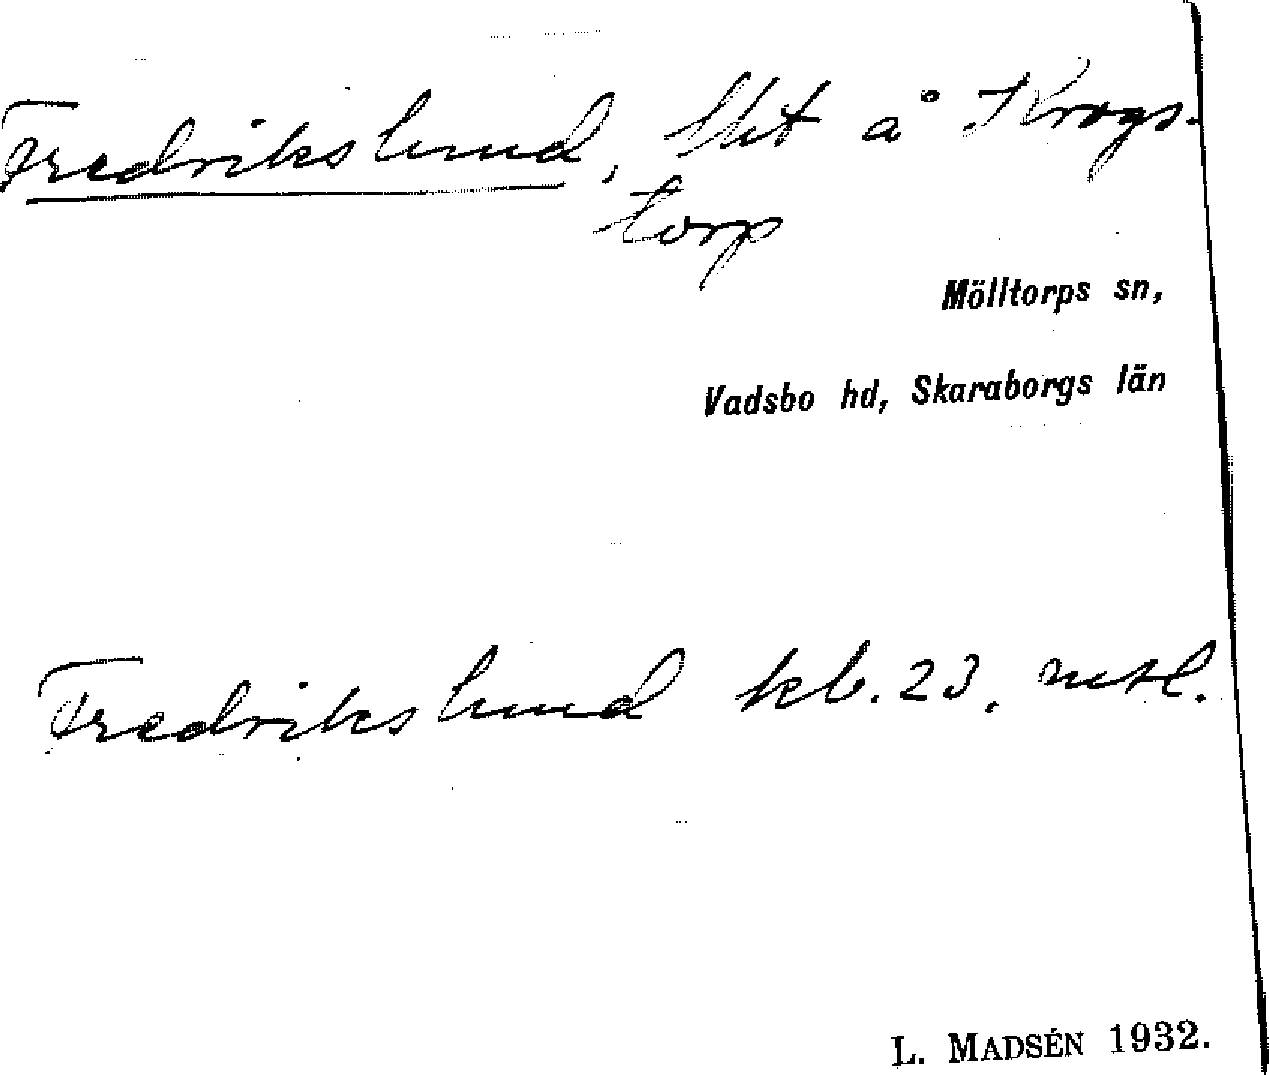 Fredrikslund, lht å Krogs-
torp
Mölltorps sn,
Vadsbo hd, Skaraborgs län
Fredrikslund kb. 23, mtl.
L. MADSÉN 1932.